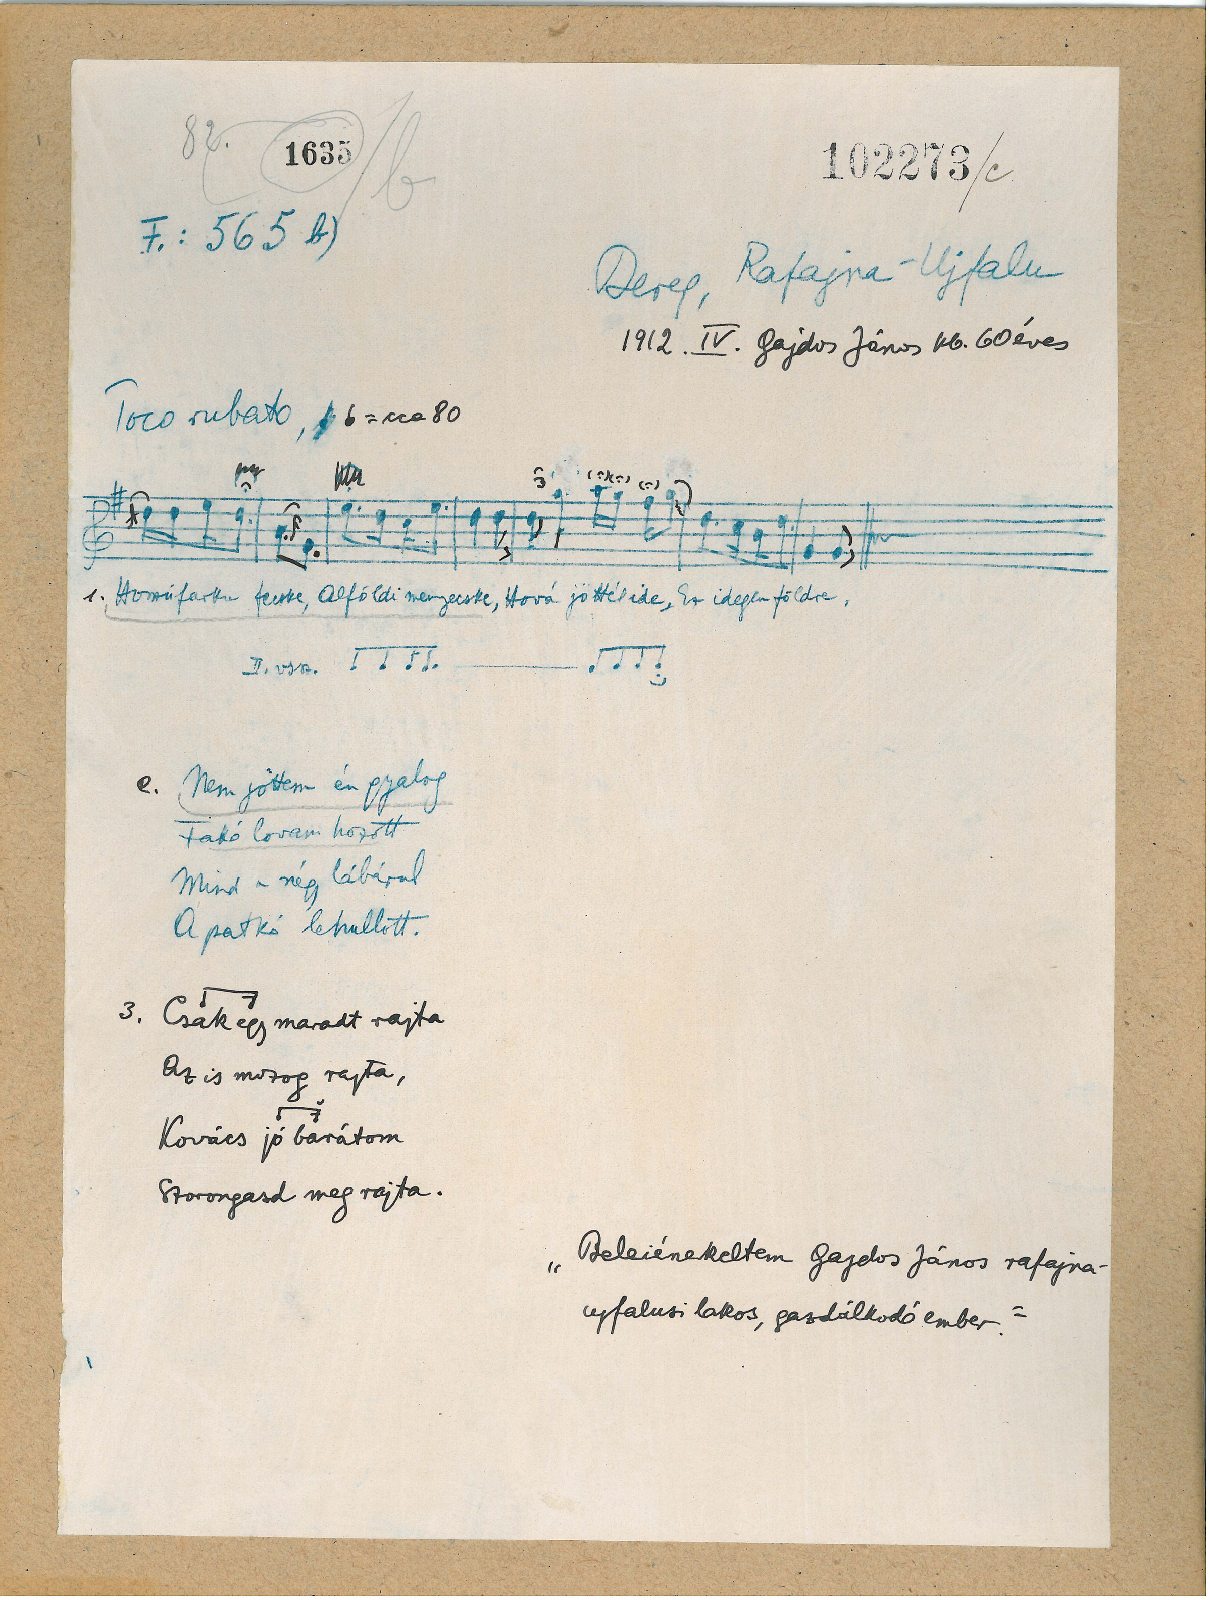 82.
1635/b
102273/c
F.: 565 b)
Bereg, Rafajna-Ujfalu
1912. IV. Gajdos János kb. 60 éves
Poco rubato, = cca 80
1. Hosszúfarku fecske, Alföldi menyecske, Hová jöttél ide, Ez idegen földre,
II. vsz.
2. Nem jöttem én gyalog
Fakó lovam hozott
Mind a négy lábárul
A patkó lehullott.
3. Csak egy maradt rajta
Az is mozog rajta,
Kovács jó barátom
Szorongasd meg rajta.
„Beleiénekeltem Gajdos János rafajna-
ujfalusi lakos, gazdálkodó ember."